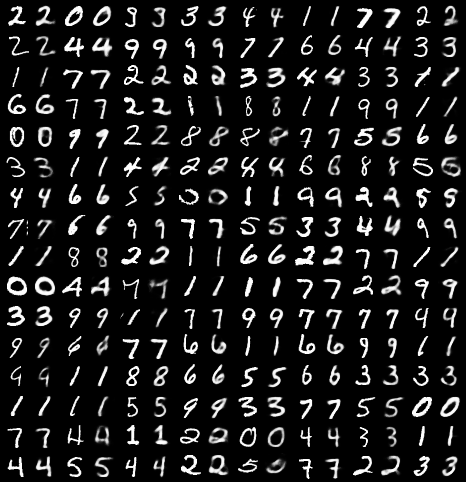 2 2 0 0 9 9 3 3 4 4 1 1 7 7 2 2
2 2 4 4 9 9 9 9 7 7 6 6 4 4 3 3
1 1 7 7 2 2 2 2 3 3 4 4 3 3 1 1
6 6 7 7 2 2 1 1 8 8 1 1 9 9 1 1
0 0 9 9 2 2 8 8 8 8 7 7 5 5 6 6
3 3 1 1 4 4 2 2 4 4 6 6 8 8 5 5
4 4 6 6 5 5 0 0 1 1 9 9 2 2 5 5
7 7 6 6 9 9 7 7 5 5 3 3 4 4 9 9
1 1 8 8 2 2 1 1 6 6 2 2 7 7 1 1
0 0 4 4 7 7 1 1 1 1 7 7 2 2 9 9
3 3 9 9 1 1 7 7 9 9 7 7 7 7 9 9
9 9 6 6 7 7 6 6 1 1 6 6 9 9 1 1
9 9 1 1 8 8 6 6 5 5 6 6 3 3 3 3
1 1 1 1 5 5 9 9 3 3 7 7 5 5 0 0
7 7 4 4 1 1 2 2 0 0 4 4 3 3 1 1
4 4 5 5 4 4 2 2 5 5 7 7 2 2 3 3